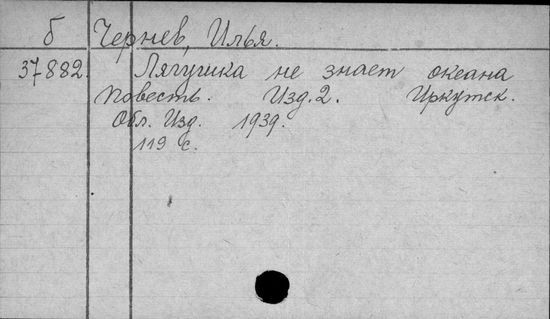 б Чернев, Илья.
37882. Лягушка не знает океана
Повесть. Изд. 2. Иркутск.
Обл. Изд. 1939.
119 с.